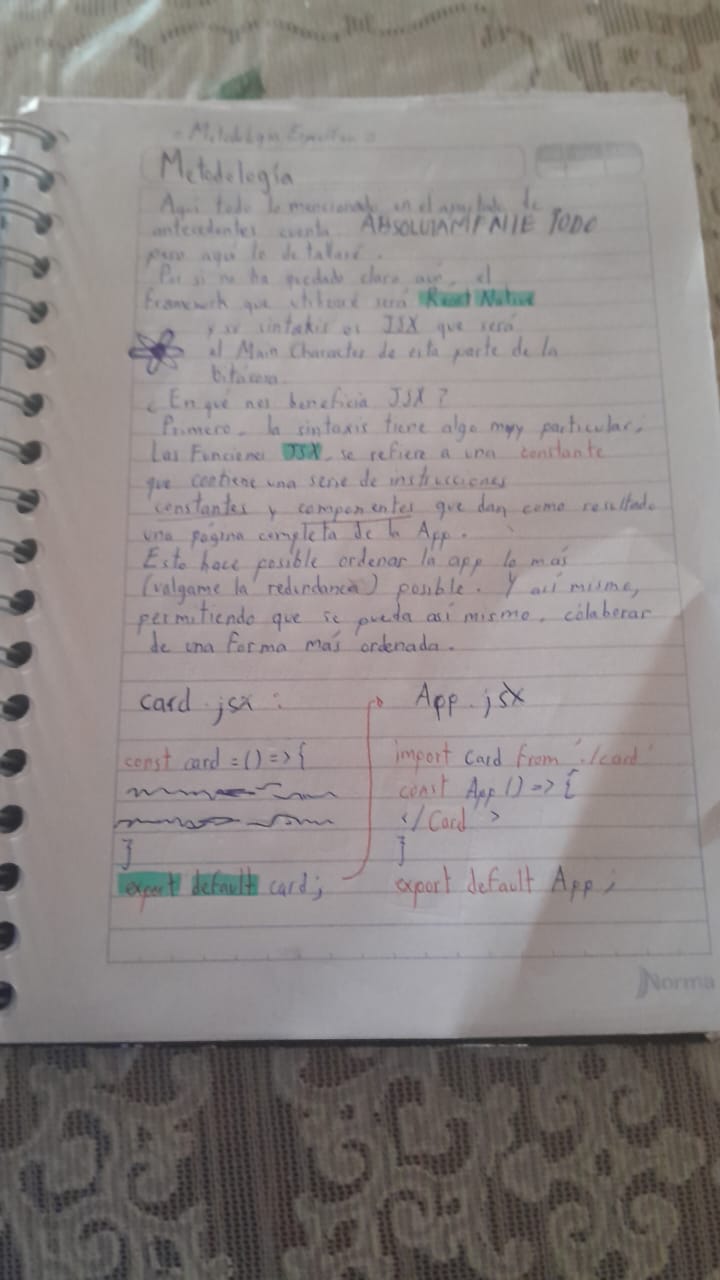 - Metodología Específica -
Metodología
Aquí todo lo mencionado en el apartado de
antecedentes cuenta. ABSOLUTAMENTE TODO
pero aquí lo detallaré.
Por si no ha quedado claro aún, el
Framework que utilizaré será React Native
y su sintaxis es JSX que será
el Main Character de esta parte de la
bitácora.
¿En qué nos beneficia JSX?
Primero, la sintaxis tiene algo muy particular.
Las Funciones JSX, se refiere a una constante
que contiene una serie de instrucciones
constantes y componentes que dan como resultado
una página completa de la App.
Esto hace posible ordenar la app lo más
(valgame la redundancia) posible. Y así mismo,
permitiendo que se pueda así mismo, colaborar
de una forma más ordenada.
card.jsx:
const card = () => {
}
export default card;
App.jsx
import Card from './card'
const App () => {
</Card >
}
export default App;
Norma